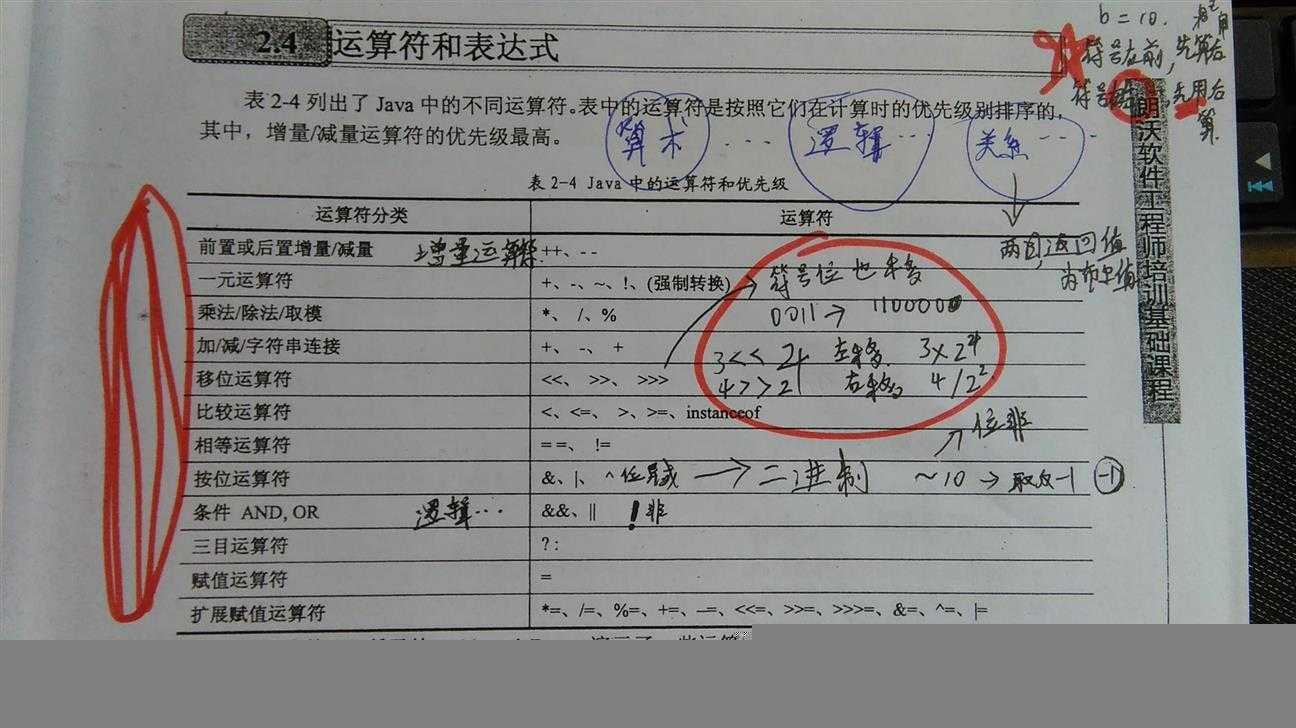 2.4 运算符和表达式
b = 10.
符号在前,先算后
用
符号
先用后
算
朗沃软件工程师培训基础课程
表 2-4 列出了 Java 中的不同运算符。表中的运算符是按照它们在计算时的优先级别排序的,
其中，增量/减量运算符的优先级最高。
算术 ... 逻辑... 关系...
两目,返回值
为布尔值
表 2-4 Java 中的运算符和优先级
运算符分类 运算符
前置或后置增量/减量 增量运算符 ++、--
一元运算符 +、-、~、!、(强制转换) 符号位也移
乘法/除法/取模 *、/、% 0011→ 1100000
加/减/字符串连接 +、-、+ 3<<4 左移 3×2⁴
移位运算符 <<、>>、>>> 4>>2 右移 4/2²
比较运算符 <、<=、>、>=、instanceof
相等运算符 ==、!= 位非
按位运算符 &、|、^ 位异或 → 二进制 ~10 → 取反-1 -1
条件 AND, OR 逻辑... &&、|| ! 非
三目运算符 ? :
赋值运算符 =
扩展赋值运算符 *=、/=、%=、+=、-=、<<=、>>=、>>>=、&=、^=、|=